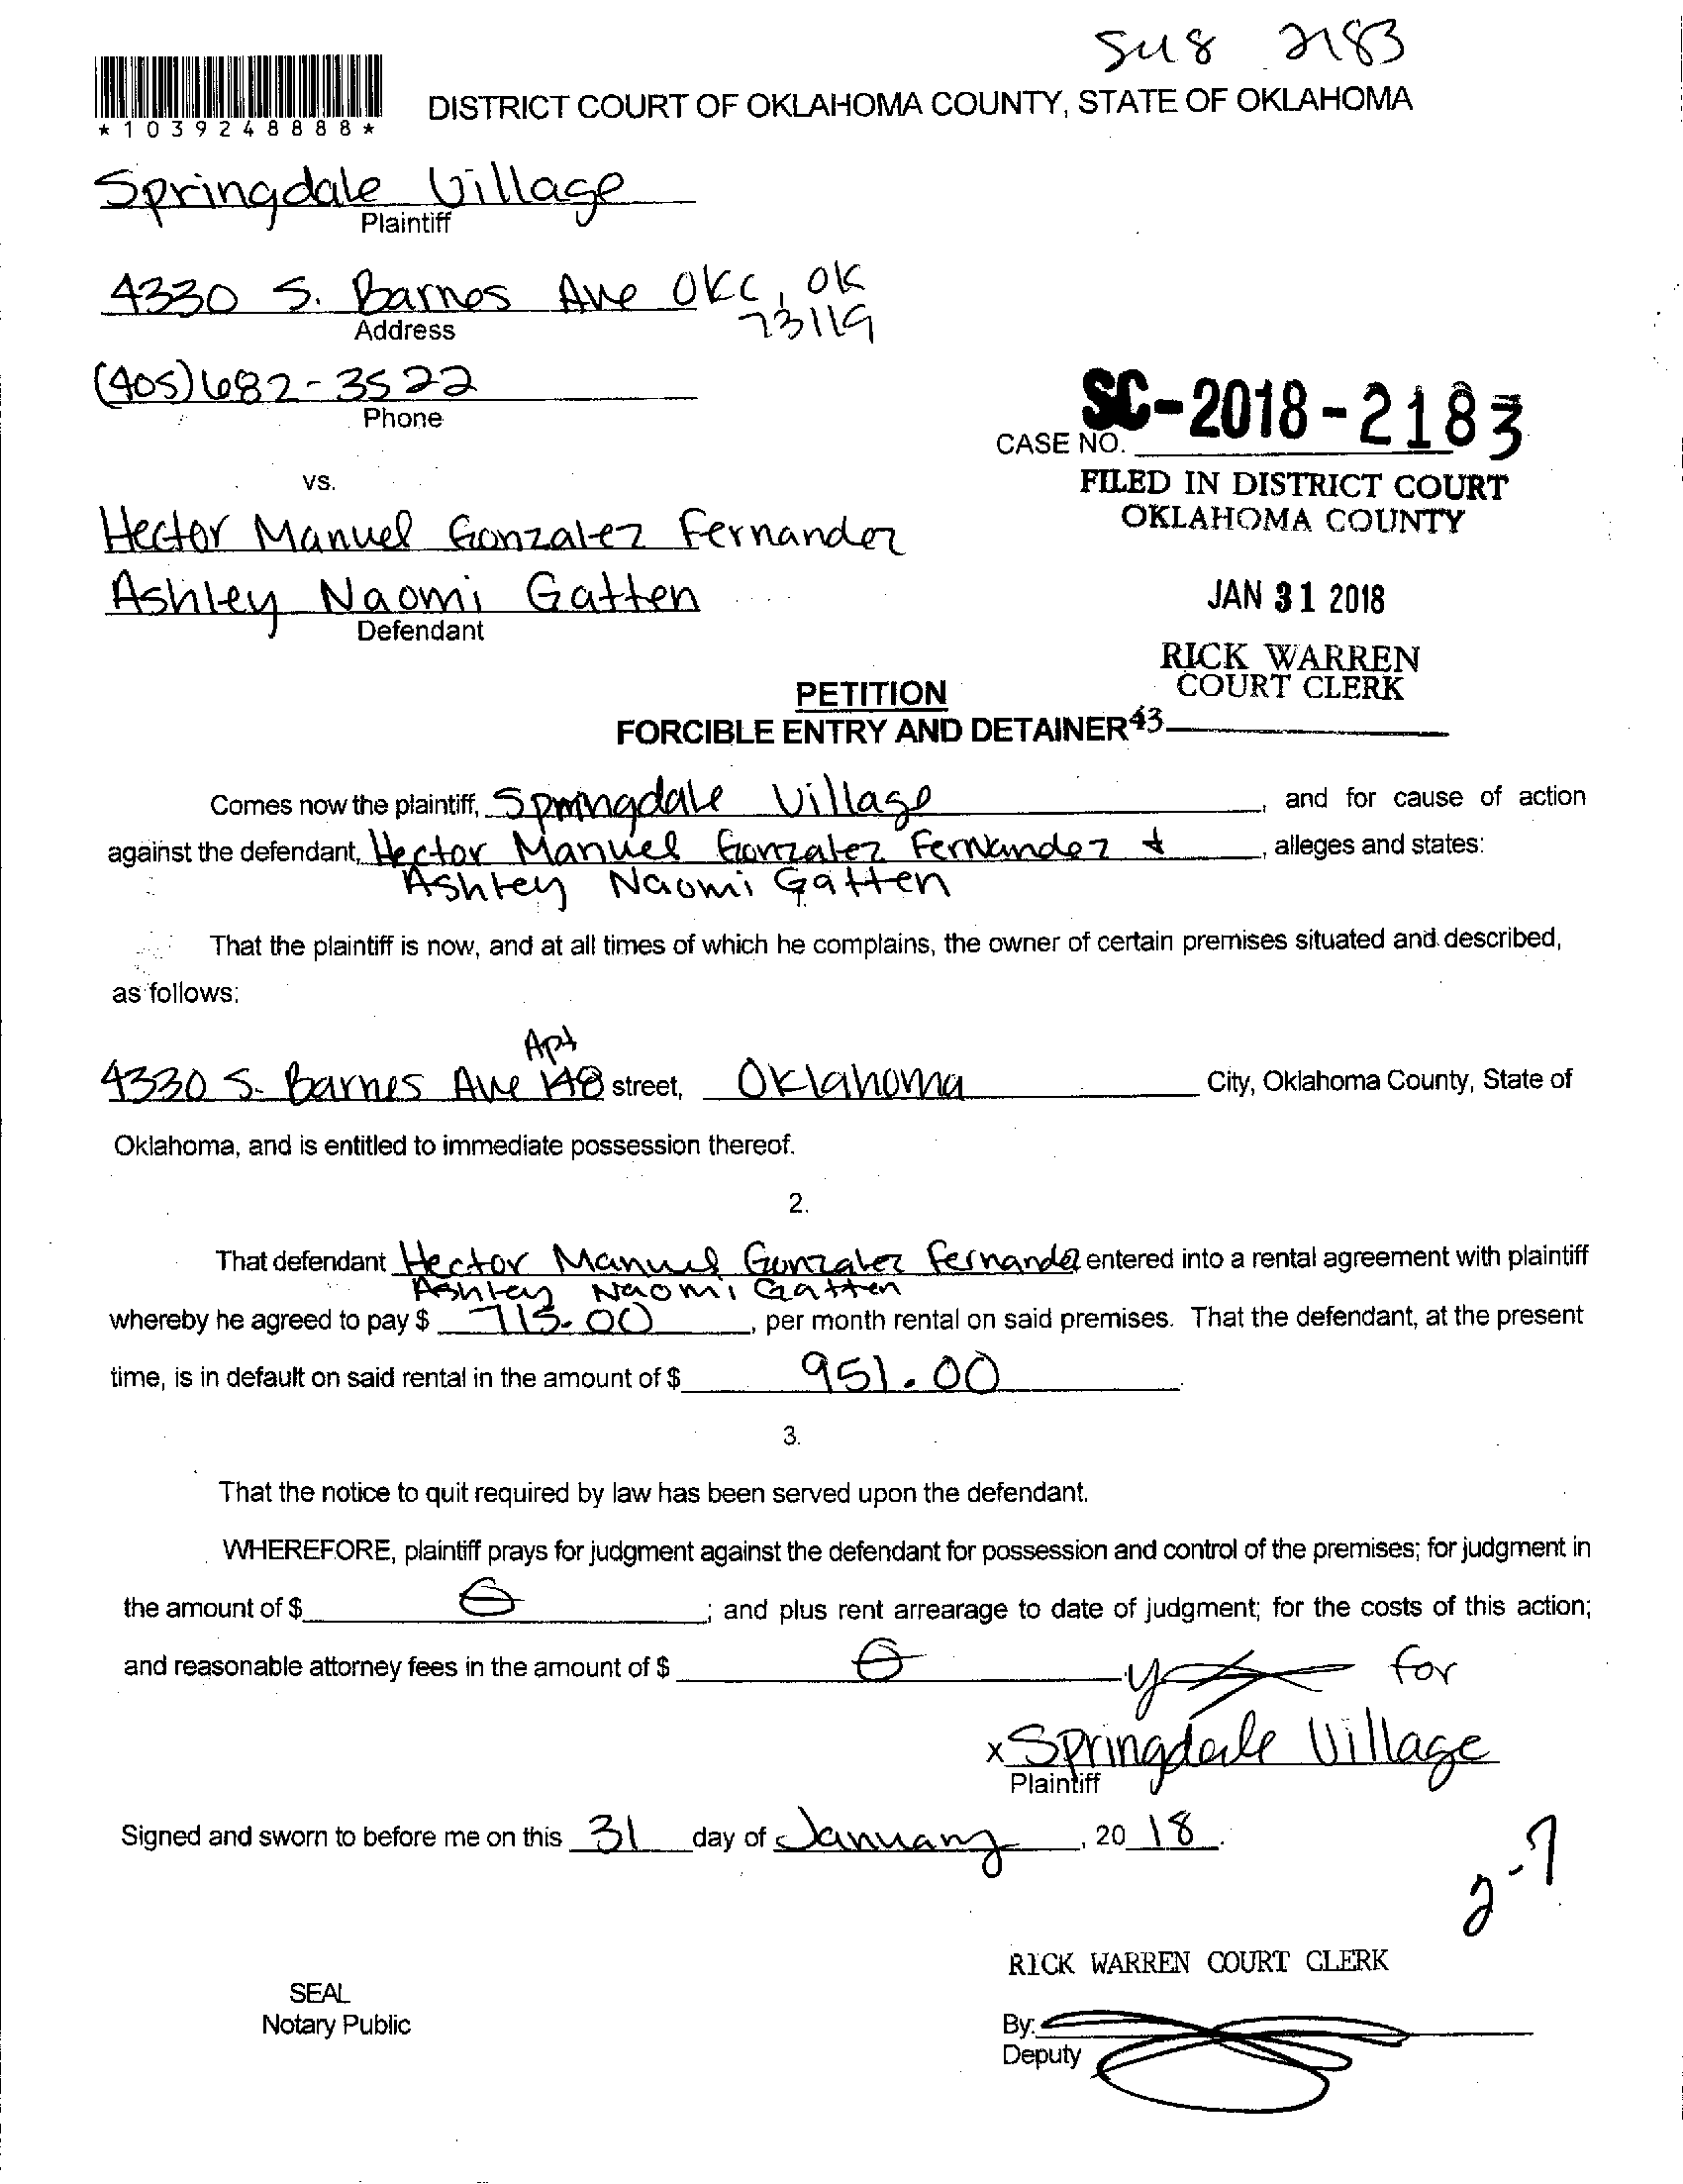 SC18 2183
*1039248888*
DISTRICT COURT OF OKLAHOMA COUNTY, STATE OF OKLAHOMA
Springdale Village
Plaintiff
4330 S. Barnes Ave OKC, OK
73119
Address
(405)682-3522
Phone
SC-2018-2183
CASE NO.
vs.
FILED IN DISTRICT COURT
OKLAHOMA COUNTY
Hector Manuel Gonzalez Fernandez
Ashley Naomi Gatten
Defendant
JAN 31 2018
RICK WARREN
COURT CLERK
PETITION
FORCIBLE ENTRY AND DETAINER 43
Comes now the plaintiff, Springdale Village, and for cause of action
against the defendant, Hector Manuel Gonzalez Fernandez +, alleges and states:
Ashley Naomi Gatten
That the plaintiff is now, and at all times of which he complains, the owner of certain premises situated and described,
as follows:
Apt
4330 S. Barnes Ave 148 street, Oklahoma City, Oklahoma County, State of
Oklahoma, and is entitled to immediate possession thereof.
2.
That defendant Hector Manuel Gonzalez Fernandez entered into a rental agreement with plaintiff
Ashley Naomi Gatten
whereby he agreed to pay $ 715.00, per month rental on said premises. That the defendant, at the present
time, is in default on said rental in the amount of $ 951.00
3.
That the notice to quit required by law has been served upon the defendant.
WHEREFORE, plaintiff prays for judgment against the defendant for possession and control of the premises; for judgment in
the amount of $ 0; and plus rent arrearage to date of judgment; for the costs of this action;
and reasonable attorney fees in the amount of $ 0
for
x Springdale Village
Plaintiff
Signed and sworn to before me on this 31 day of January, 20 18.
2-7
RICK WARREN COURT CLERK
SEAL
Notary Public
By:
Deputy